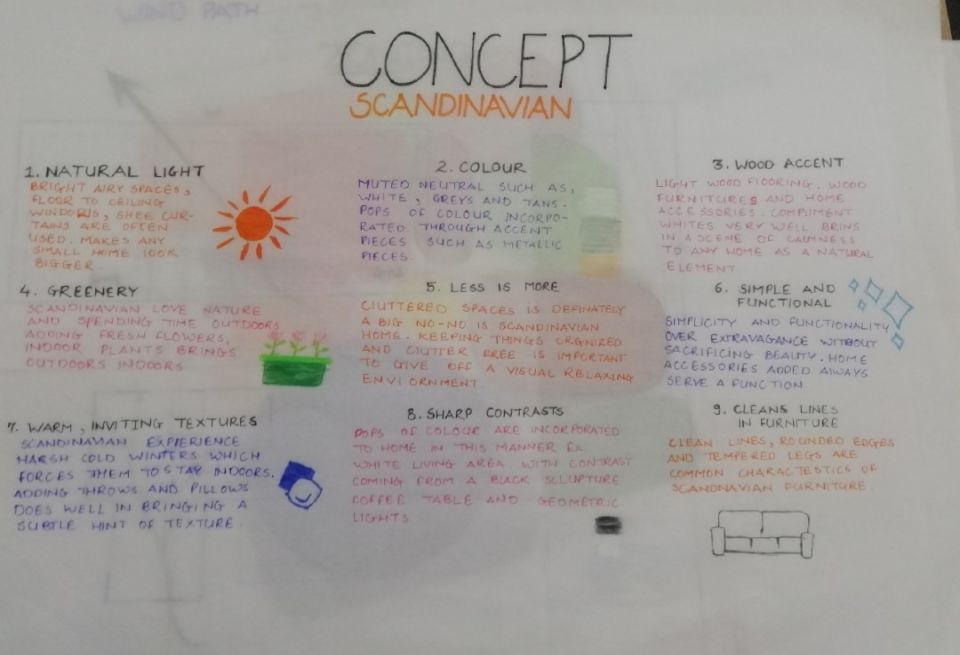 WIND PATH
CONCEPT
SCANDINAVIAN
1. NATURAL LIGHT
BRIGHT AIRY SPACES,
FLOOR TO CEILING
WINDOWS, SHEE CUR-
TAINS ARE OFTEN
USED. MAKES ANY
SMALL HOME LOOK
BIGGER.
2. COLOUR
MUTED NEUTRAL SUCH AS,
WHITE, GREYS AND TANS.
POPS OF COLOUR INCORPO-
RATED THROUGH ACCENT
PIECES SUCH AS METALLIC
PIECES.
3. WOOD ACCENT
LIGHT WOOD FLOORING, WOOD
FURNITURES AND HOME
ACCESSORIES. COMPLIMENT
WHITES VERY WELL BRINS
IN A SCENE OF CALMNESS
TO ANY HOME AS A NATURAL
ELEMENT
4. GREENERY
SCANDINAVIAN LOVE NATURE
AND SPENDING TIME OUTDOORS
ADDING FRESH FLOWERS,
INDOOR PLANTS BRINGS
OUTDOORS INDOORS
5. LESS IS MORE
CLUTTERED SPACES IS DEFINATELY
A BIG NO-NO IS SCANDINAVIAN
HOME. KEEPING THINGS ORGNIZED
AND CLUTTER FREE IS IMPORTANT
TO GIVE OFF A VISUAL RELAXING
ENVIORNMENT.
6. SIMPLE AND
FUNCTIONAL
SIMPLICITY AND FUNCTIONALITY
OVER EXTRAVAGANCE WITHOUT
SACRIFICING BEAUTY. HOME
ACCESSORIES ADDED ALWAYS
SERVE A FUNCTION
7. WARM, INVITING TEXTURES
SCANDINAVIAN EXPIERIENCE
HARSH COLD WINTERS WHICH
FORCES THEM TO STAY INDOORS.
ADDING THROWS AND PILLOWS
DOES WELL IN BRINGING A
SUBTLE HINT OF TEXTURE.
8. SHARP CONTRASTS
POPS OF COLOUR ARE INCORPORATED
TO HOME IN THIS MANNER EX.
WHITE LIVING AREA WITH CONTRAST
COMING FROM A BLACK SCLUPTURE
COFFEE TABLE AND GEOMETRIC
LIGHTS
9. CLEANS LINES
IN FURNITURE
CLEAN LINES, ROUNDED EDGES
AND TEMPERED LEGS ARE
COMMON CHARACTESTICS OF
SCANDNAVIAN FURNITURE.